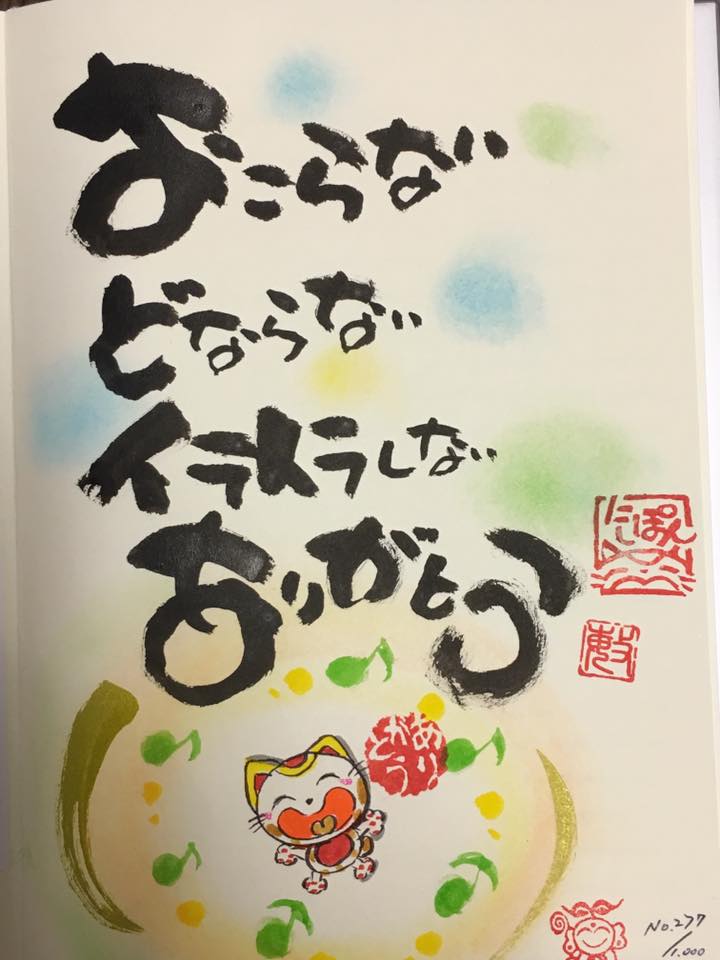 おこらない
どならない
イライラしない
ありがとう
ありがとう
No.277
/1.000